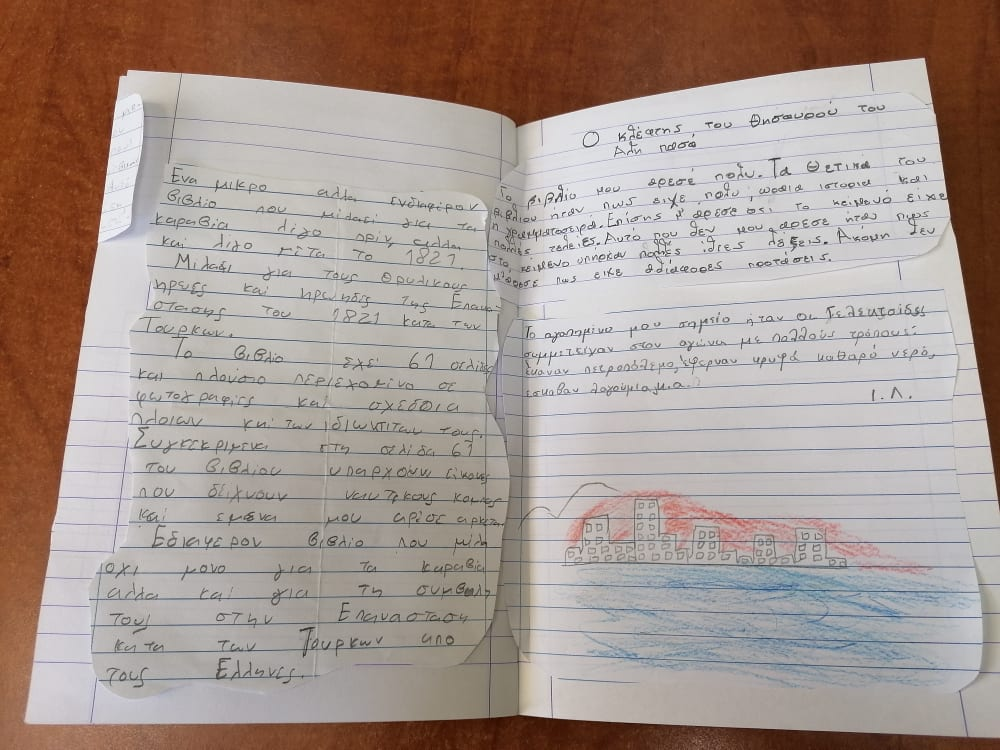 Ενα μικρο αλλα ενδιαφερον
βιβλιο που μιλαει για τα
καραβια λιγο πριν αλλα
και λιγο μετα το 1821.
Μιλαει για τους θρυλικους
ηρωες και ηρωηδες της Επανα-
στασης του 1821 κατα των
Τουρκων.
Το βιβλιο εχει 61 σελιδες
και πλουσιο περιεχομενο σε
φωτογραφιες και σχεδια
πλοιων και των ιδιωκτιτων τους.
Συγκεκριμενα στη σελιδα 61
του βιβλιου υπαρχουν εικονες
που δειχνουν ναυτικους κομπους
και εμενα μου αρεσε αρκετα.
Εδιαφερον βιβλιο που μιλα
οχι μονο για τα καραβια
αλλα και για τη συμβολη
τους στην Επανασταση
κατα των Τουρκων απο
τους Ελληνες.
Ο κλέφτης του θησαυρού του
Αλη πασά
Το βιβλιο μου αρεσε πολυ. Τα θετικά του
βιβλιου ήταν πως ειχε πολυ ωραια ιστορια και
η γραμματοσειρά. Επίσης μ' αρεσε οτι το κειμενο ειχε
πολλες τελειες. Αυτό που δεν μου αρεσε ηταν πως
στο κειμενο υπηρχαν πολλες ιδιες λεξεις. Ακομη δεν
μ' αρεσε πως ειχε αδιάφορες προτάσεις.
Το αγαπημένο μου σημείο ήταν οι Γελεκτσίδες
συμμετείχαν στον αγώνα με πολλούς τρόπους:
έκαναν πετροπόλεμο, έφερναν κρυφά καθαρό νερό,
έσκαβαν λαγούμια.
Ι.Λ.